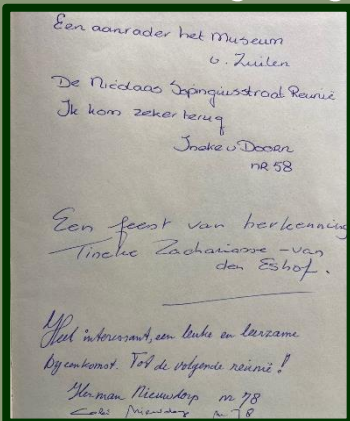 Een aanrader het Museum
v. Zuilen
De Nicolaas Sopingiusstraat Reunië
Ik kom zeker terug
Ineke v Doorn
nr 58
Een feest van herkenning
Tineke Zachariasse - van
den Eshof.
Heel interessant, een leuke en leerzame
bijeenkomst. Tot de volgende reünie!
Herman Nieuwdorp nr 78
Nieuwdorp nr 78